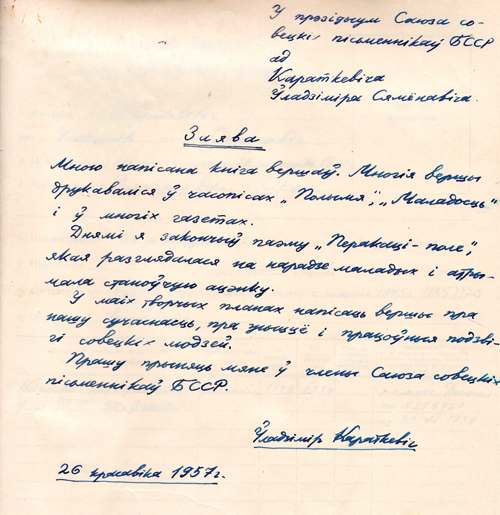 У прэзідыум Саюза со-
вецкіх пісьменнікаў БССР
ад
Караткевіча
Ўладзіміра Сямёнавіча.
Заява
Мною напісана кніга вершаў. Многія вершы
друкаваліся ў часопісах „Полымя“, „Маладосць“
і ў многіх газетах.
Днямі я закончыў паэму „Перакаці-поле“,
якая разглядалася на нарадзе маладых і атры-
мала станоўчую ацэнку.
У маіх творчых планах напісаць вершы пра
нашу сучаснасць, пра жыццё і працоўныя подзві-
гі совецкіх людзей.
Прашу прыняць мяне ў члены Саюза совецкіх
пісьменнікаў БССР.
Ўладзімір Караткевіч
26 красавіка 1957 г.